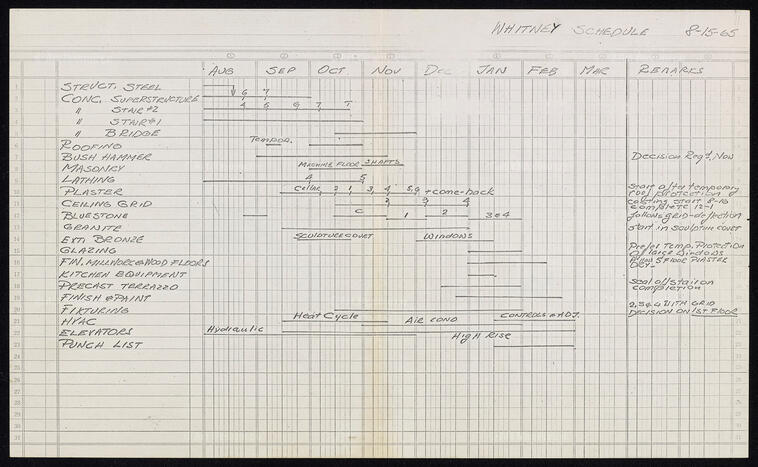 WHITNEY SCHEDULE 8-15-65
AUG SEP OCT NOV DEC JAN FEB MAR REMARKS
STRUCT. STEEL
CONC. SUPERSTRUCTURE 6 7
" STAIR #2 4 6 9 7 T
" STAIR #1
" BRIDGE
ROOFING Tempor.
BUSH HAMMER Decision Reqd. Now
MASONRY MACHINE FLOOR SHAFTS
LATHING 4 5
PLASTER Cellar, 2 1 3, 4 5,9 + come-back Start after temporary roof protection
CEILING GRID 2 3 4 coasting start 8-16 complete 12-1
BLUESTONE C 1 2 3 & 4 follows grid-deflection
GRANITE SCULPTURE COURT start in sculpture court
EXT. BRONZE WINDOWS
GLAZING Prefer Temp. Protection of large windows
FIN. MILLWORK & WOOD FLOORS Allow 5 FLOOR PLASTER DRY-
KITCHEN EQUIPMENT
PRECAST TERRAZZO Seal off stair on completion
FINISH & PAINT
FIXTURING 2, 3 & 4 WITH GRID
HVAC Heat Cycle AIR COND CONTROLS & ADJ. DECISION ON 1ST FLOOR
ELEVATORS Hydraulic High Rise
PUNCH LIST